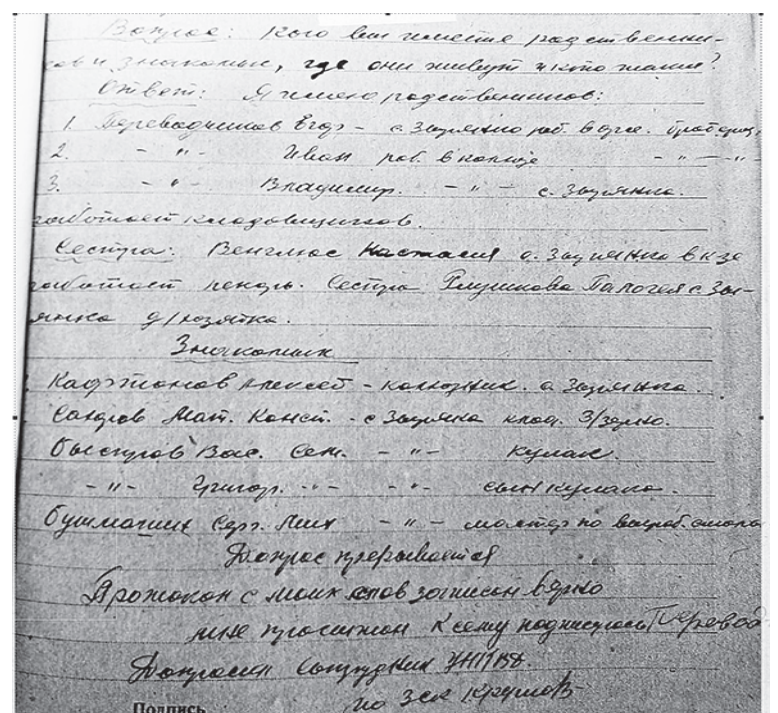 Вопрос: Кого вы имеете родственни-
ков и знакомых, где они живут и кто такие?
Ответ: Я имею родственников:
1. Переводчиков Егор – с. Зырянка раб. в
2. – " – Иван раб. в колхозе – " – – " –
3. – " – Владимир. – " – с. Зырянка.
работает кладовщиком.
Сестра: Настасия с. Зырянка в к-зе
работает пекарь. Сестра Глушкова Палогея с. Зы-
янка д/хозяйка.
Знакомых
Кафтонов Алексей – колхозник. с. Зырянка.
Мат. Конст. – с Зырянка клад. З/зерно.
Быстров Вас. Сем. – " – кулак.
– " – Григор. – " – – " – сын кулака.
Бушмагин Серг. Мих – " – мастер по
Допрос прерывается
Протокол с моих слов записан верно
мне прочитан к сему подписуюсь Перевод
Допросил сотрудник УНКВД.
по ЗСК
Подпись